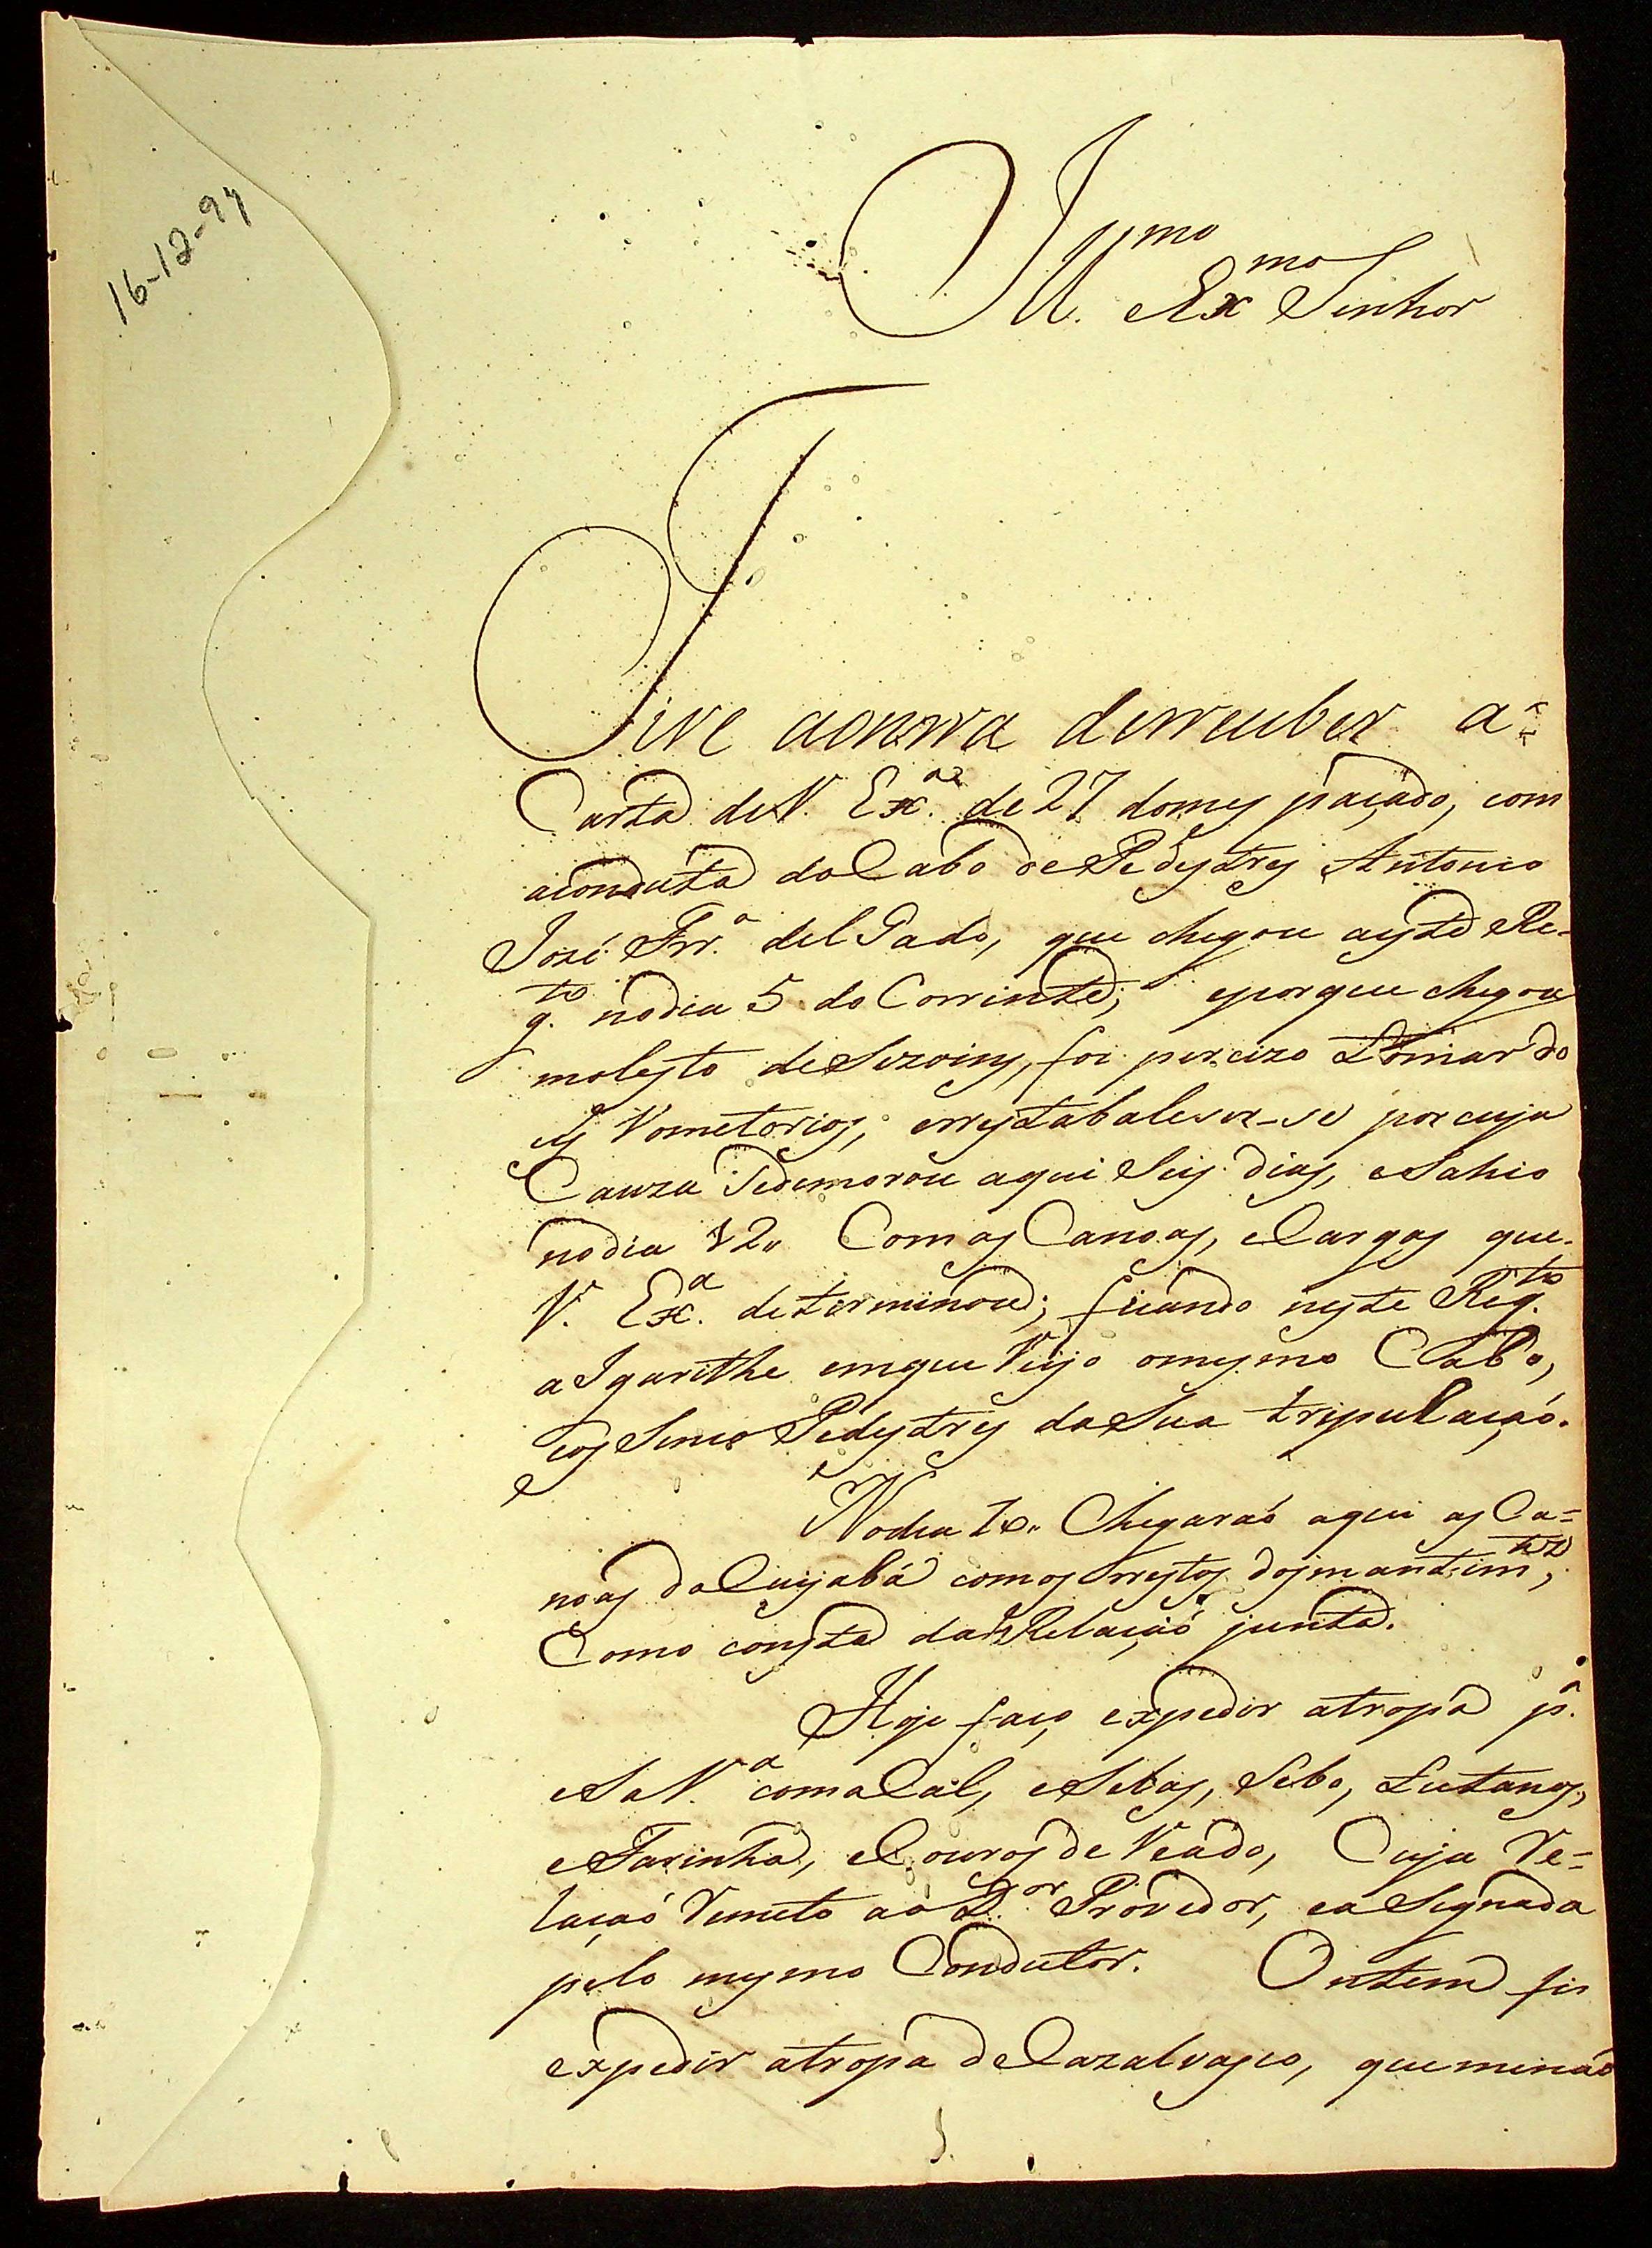 16-12-97
Ill.mo Ex.mo Senhor
Tive aonrra derreceber a=
Carta deV. Ex.ca de 27 domes paçado, com
aconduta doCabo de Pedestres Antonio
José Frr.a del Gado, que chegou aeste Re=
g.to nodia 5 do Corrinte; eporque chegou
molesto deSezoins, foi percizo Lomar do
es Vometorios; errestabaleser-se porcuja
Cauza Sedemorou aqui Seis dias, eSahio
nodia 12,, Com as Canoas, eCargas que
V. Ex.a determinou; ficando neste Reg.to
a Igarithe emque Veyo omesmo Cabo,
eos Sinco Pedestres daSua tripulaçaó.
Nodia 10,, Chegaraó aqui as Ca=
noas doCuyabá comos rrestos dosmantim.tos,
Como consta da Relaçaó junta.
Hoje faço expedir atropa p.a
eSaV.a comaCal, eSebas, Sebo, Lutanos,
eFarinha, eCouros de Veado, Cuja Re=
laçaó Remeto aó D.or Provedor, eaSignada
pelo mesmo Condutor. Ontem fis
expedir atropa deCazalvasco, queminaó